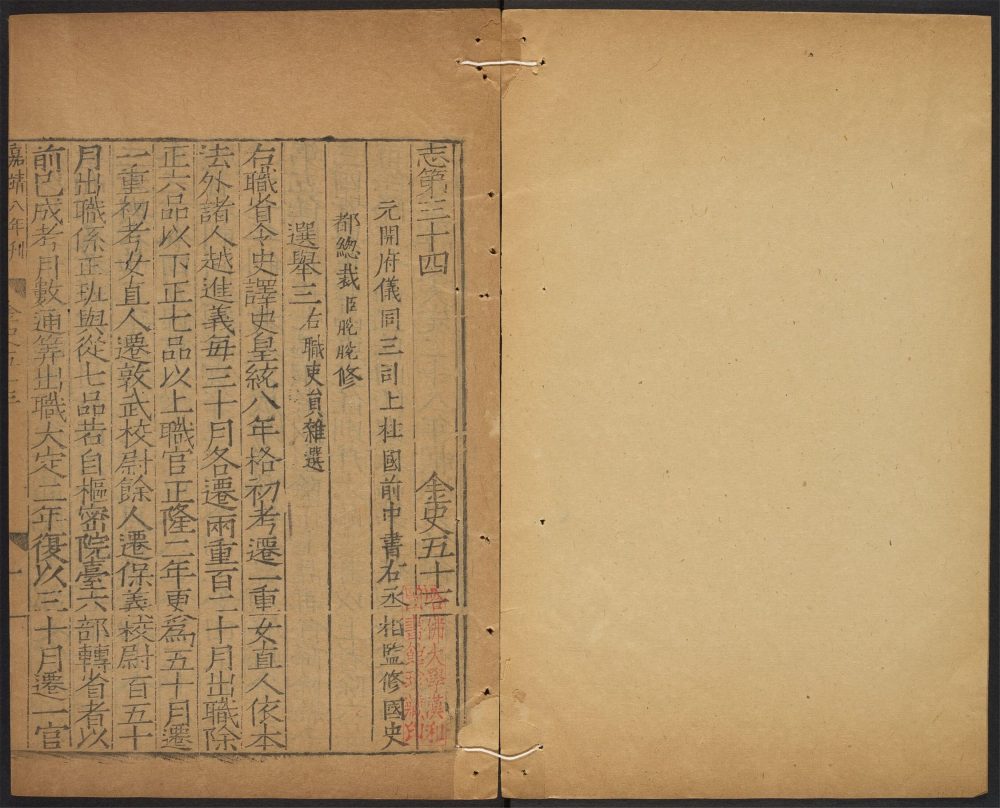 志第三十四 金史五十三
元開府儀同三司上柱國前中書右丞相監修國史
都總裁臣脫脫修
選舉三右職吏員雜選
右職省令史譯史皇統八年格初考遷一重女直人依本
法外諸人越進義每三十月各遷兩重百二十月出職除
正六品以下正七品以上職官正隆二年更爲五十月遷
一重初考女直人遷敦武校尉餘人遷保義校尉百五十
月出職係正班與從七品若自樞密院臺六部轉省者以
前已成考月數通筭出職大定二年復以三十月遷一官
嘉靖八年刊
哈佛大學漢和
圖書館珍藏印